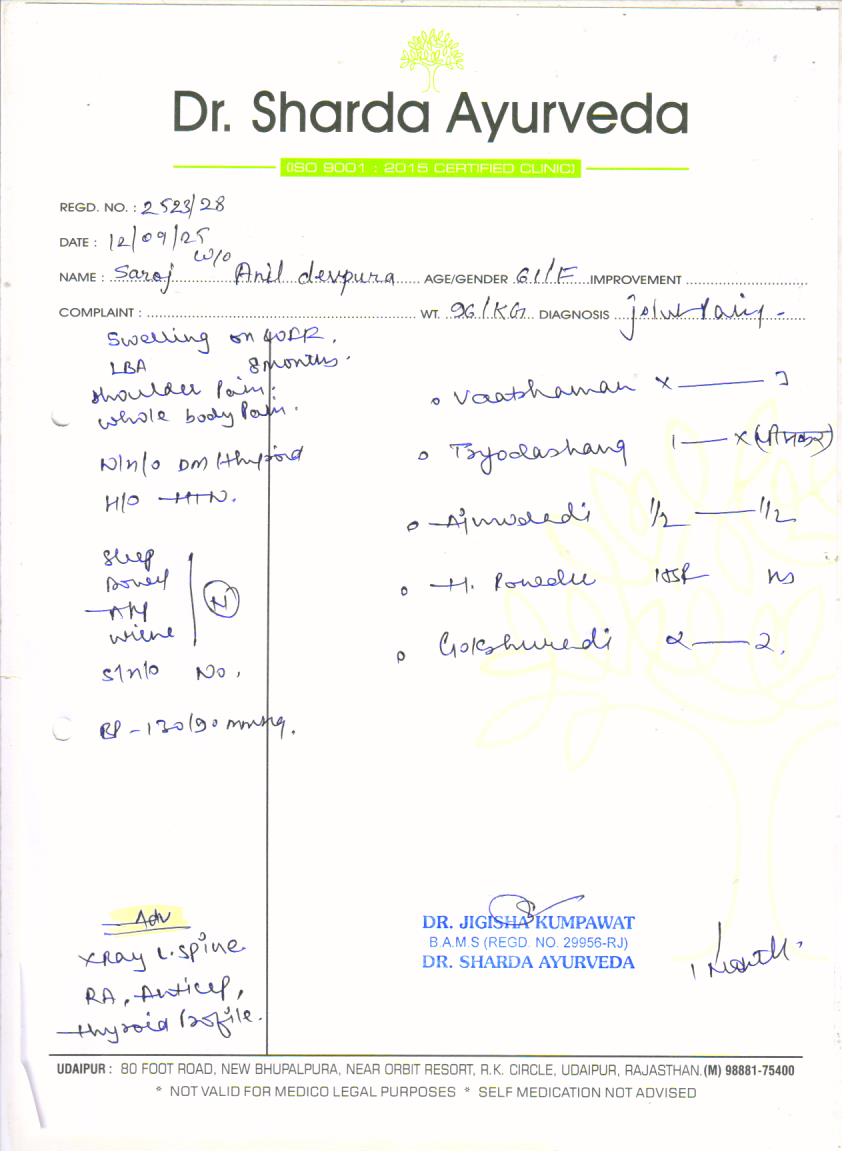 Dr. Sharda Ayurveda
(ISO 9001 : 2015 CERTIFIED CLINIC)
REGD. NO. : 2523/28
DATE : 12/09/25
W/O
NAME : Saroj Anil devpura AGE/GENDER 61/F IMPROVEMENT
COMPLAINT : WT. 96/KG DIAGNOSIS Joint Pain
Swelling on
LBA 8 months.
Shoulder Pain.
whole body Pain.
N/H/O DM/thyroid
H/O HTN.
Sleep
N
Urine
S/H/O No.
BP - 130/90 mmHg.
Vaatshaman x
Tryodashang 1 x
Ajmodadi 1/2 1/2
H.
Gokshuradi 2 2
Adv
X Ray L. Spine
RA, Anti ccp,
thyroid Profile.
DR. JIGISHA KUMPAWAT
B.A.M.S (REGD. NO. 29956-RJ)
DR. SHARDA AYURVEDA
1 Month.
UDAIPUR : 80 FOOT ROAD, NEW BHUPALPURA, NEAR ORBIT RESORT, R.K. CIRCLE, UDAIPUR, RAJASTHAN.(M) 98881-75400
* NOT VALID FOR MEDICO LEGAL PURPOSES * SELF MEDICATION NOT ADVISED